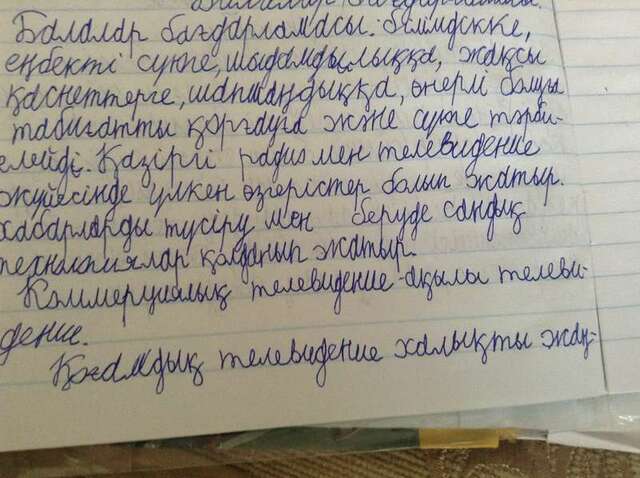 Балалар бағдарламасы: білімдікке,
еңбекті сүюге, шыдамдылыққа, жақсы
қасиеттерге, шапшаңдыққа, өнерлі болуға
табиғатты қорғауға және сүюге тәрби-
елейді. Қазіргі радио мен телевидение
жүйесінде үлкен өзгерістер болып жатыр.
хабарларды түсіру мен беруде сандық
технологиялар қолданып жатыр.
Коммерциялық телевидение-ақылы телеви-
дение.
Қоғамдық телевидение халықты жаң-